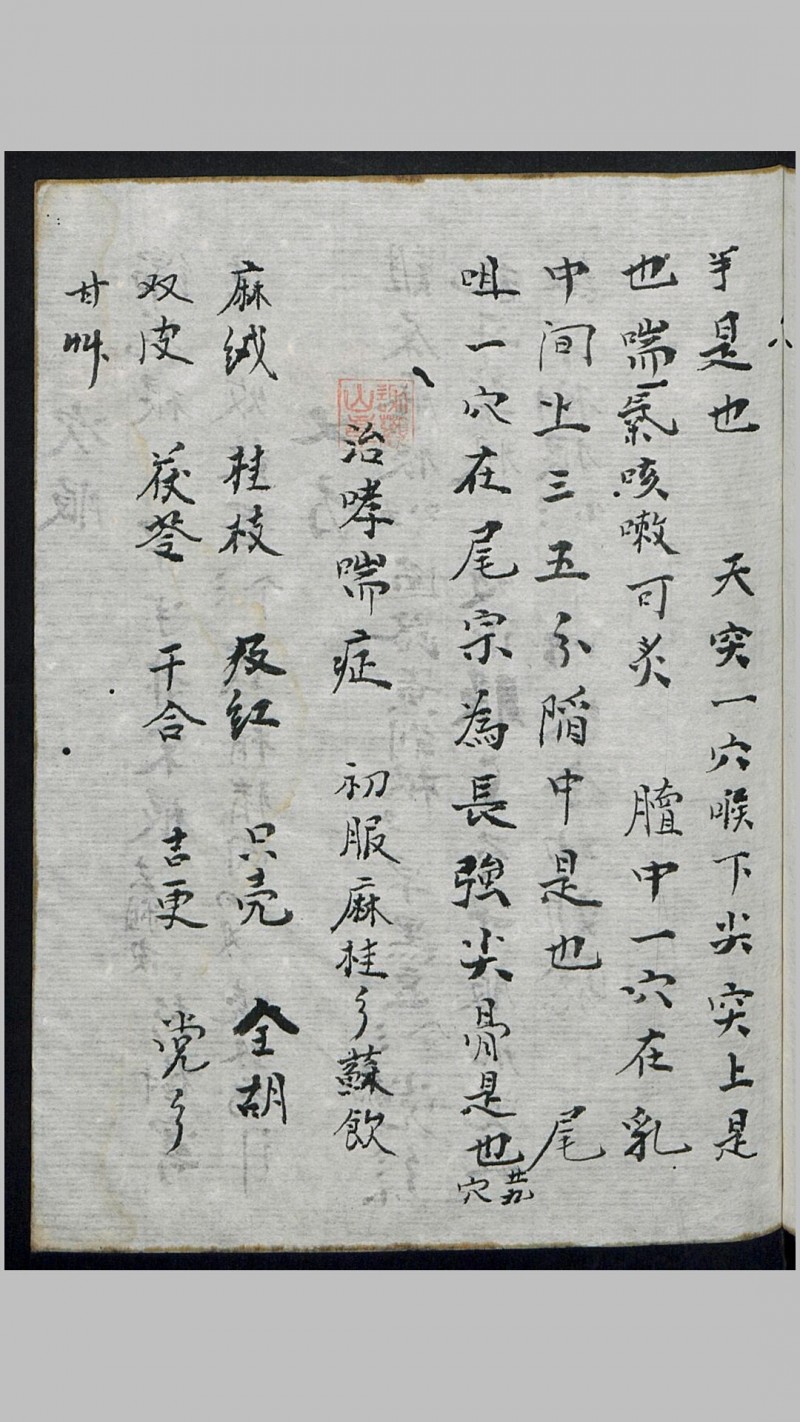 手是也 天突一穴喉下尖突上是
也喘氣咳嗽可炙 膻中一穴在乳
中间上三五分陷中是也 尾
咀一穴在尾宗為長強尖骨是也 廿九穴
治哮喘症 初服麻桂參蘇飲
麻绒 桂枝 殳红 只壳 全胡
双皮 茯苓 干合 吉更 党参
甘艸